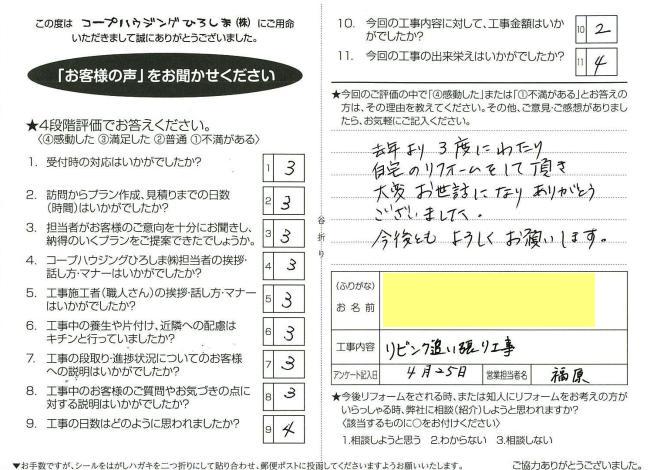 この度は コープハウジングひろしま(株) にご用命
いただきまして誠にありがとうございます。
「お客様の声」をお聞かせください
★4段階評価でお答えください。
〈④感動した ③満足した ②普通 ①不満がある〉
1. 受付時の対応はいかがでしたか?
1 3
2. 訪問からプラン作成、見積りまでの日数
(時間)はいかがでしたか?
2 3
3. 担当者がお客様のご意向を十分にお聞きし、
納得のいくプランをご提案できたでしょうか。
3 3
4. コープハウジングひろしま㈱担当者の挨拶・
話し方・マナーはいかがでしたか?
4 3
5. 工事施工者(職人さん)の挨拶・話し方・マナー
はいかがでしたか?
5 3
6. 工事中の養生や片付け、近隣への配慮は
キチンと行っていましたか?
6 3
7. 工事の段取り・進捗状況についてのお客様
への説明はいかがでしたか?
7 3
8. 工事中のお客様のご質問やお気づきの点に
対する説明はいかがでしたか?
8 3
9. 工事の日数はどのように思われましたか?
9 4
谷折り
10. 今回の工事内容に対して、工事金額はいか
がでしたか?
10 2
11. 今回の工事の出来栄えはいかがでしたか?
11 4
★今回のご評価の中で「④感動した」または「①不満がある」とお答え
の方は、その理由を教えてください。その他、ご意見・ご感想がありまし
たら、お気軽にご記入ください。
去年より 3度にわたり
自宅のリフォームをして頂き
大変 お世話になり ありがとう
ございました。
今後とも よろしく お願いします。
(ふりがな)
お名前
工事内容 リビング追い張り工事
アンケート記入日 4月25日 営業担当者名 福原
★今後リフォームをされる時、または知人にリフォームをお考えの方が
いらっしゃる時、弊社に相談(紹介)しようと思われますか?
〈該当するものに○をお付けください〉
1.相談しようと思う 2.わからない 3.相談しない
▼お手数ですが、シールをはがしハガキを二つ折りにして貼り合わせ、郵便ポストに投函してくださいますようお願いいたします。
ご協力ありがとうございました。